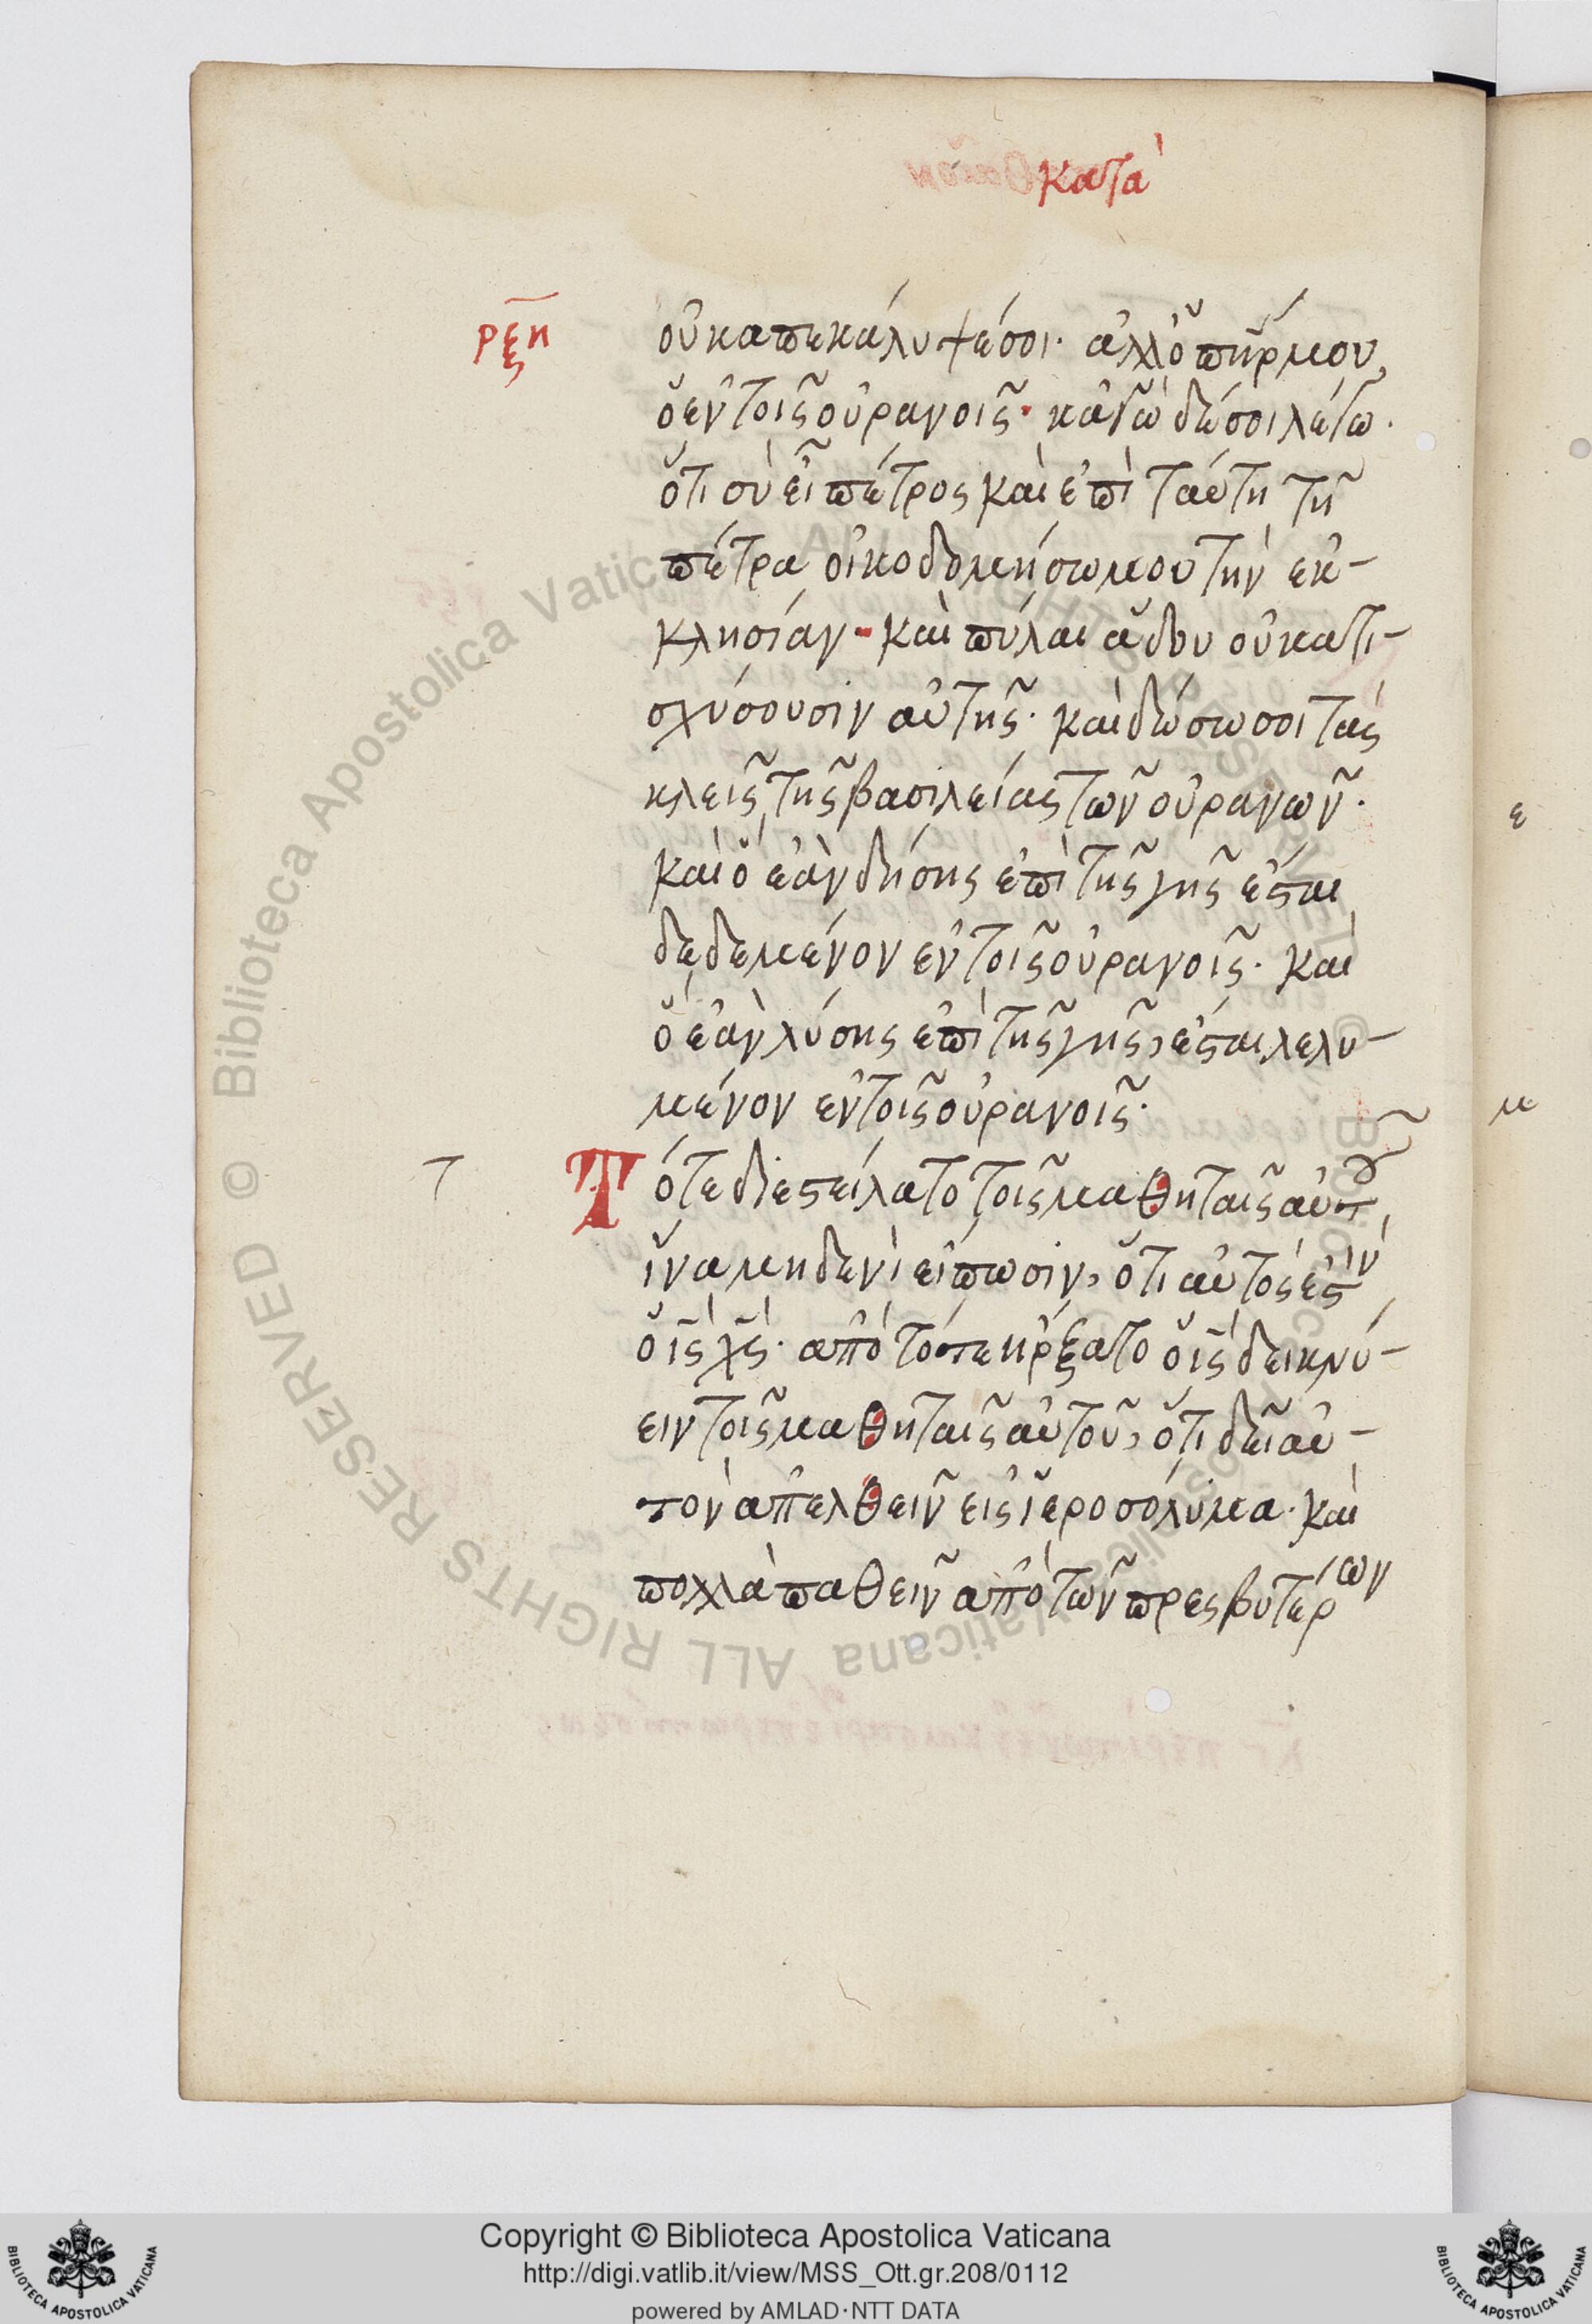 κατὰ
ρξη
οὐκ ἀπεκάλυψέ σοι· ἀλλ ὁ πηρ μου,
ὁ ἐν τοῖς οὐρανοῖς· κἀγὼ δέ σοι λέγω·
ὅτι σὺ εἶ πέτρος καὶ ἐπὶ ταύτη τῆ
πέτρα οἰκοδομήσω μου τὴν ἐκ-
κλησίαν· καὶ πύλαι ἅδου οὐ κατι-
σχύσουσιν αὐτῆς· καὶ δώσω σοι τὰς
κλεῖς τῆς βασιλείας τῶν οὐρανῶν·
καὶ ὃ ἐὰν δήσης ἐπὶ τῆς γῆς ἔσται
δεδεμένον ἐν τοῖς οὐρανοῖς· καὶ
ὃ ἐὰν λύσης ἐπὶ τῆς γῆς, ἔσται λελυ-
μένον ἐν τοῖς οὐρανοῖς·
Τ
Τότε διεστείλατο τοῖς μαθηταῖς αὐτοῦ,
ἵνα μηδενὶ εἴπωσιν, ὅτι αὐτός ἐστιν
ὁ ις χς· ἀπὸ τότε ἤρξατο ὁ ις δεικνύ-
ειν τοῖς μαθηταῖς αὐτοῦ, ὅτι δεῖ αὐ-
τὸν ἀπελθεῖν εἰς ἱεροσόλυμα· καὶ
πολλὰ παθεῖν ἀπὸ τῶν πρεσβυτέρων
ε
με
© Biblioteca Apostolica Vaticana ALL RIGHTS RESERVED © Biblioteca Apostolica Vaticana ALL RIGHTS RESERVED
Copyright © Biblioteca Apostolica Vaticana
http://digi.vatlib.it/view/MSS_Ott.gr.208/0112
powered by AMLAD·NTT DATA
BIBLIOTECA APOSTOLICA VATICANA
BIBLIOTECA APOSTOLICA VATICANA